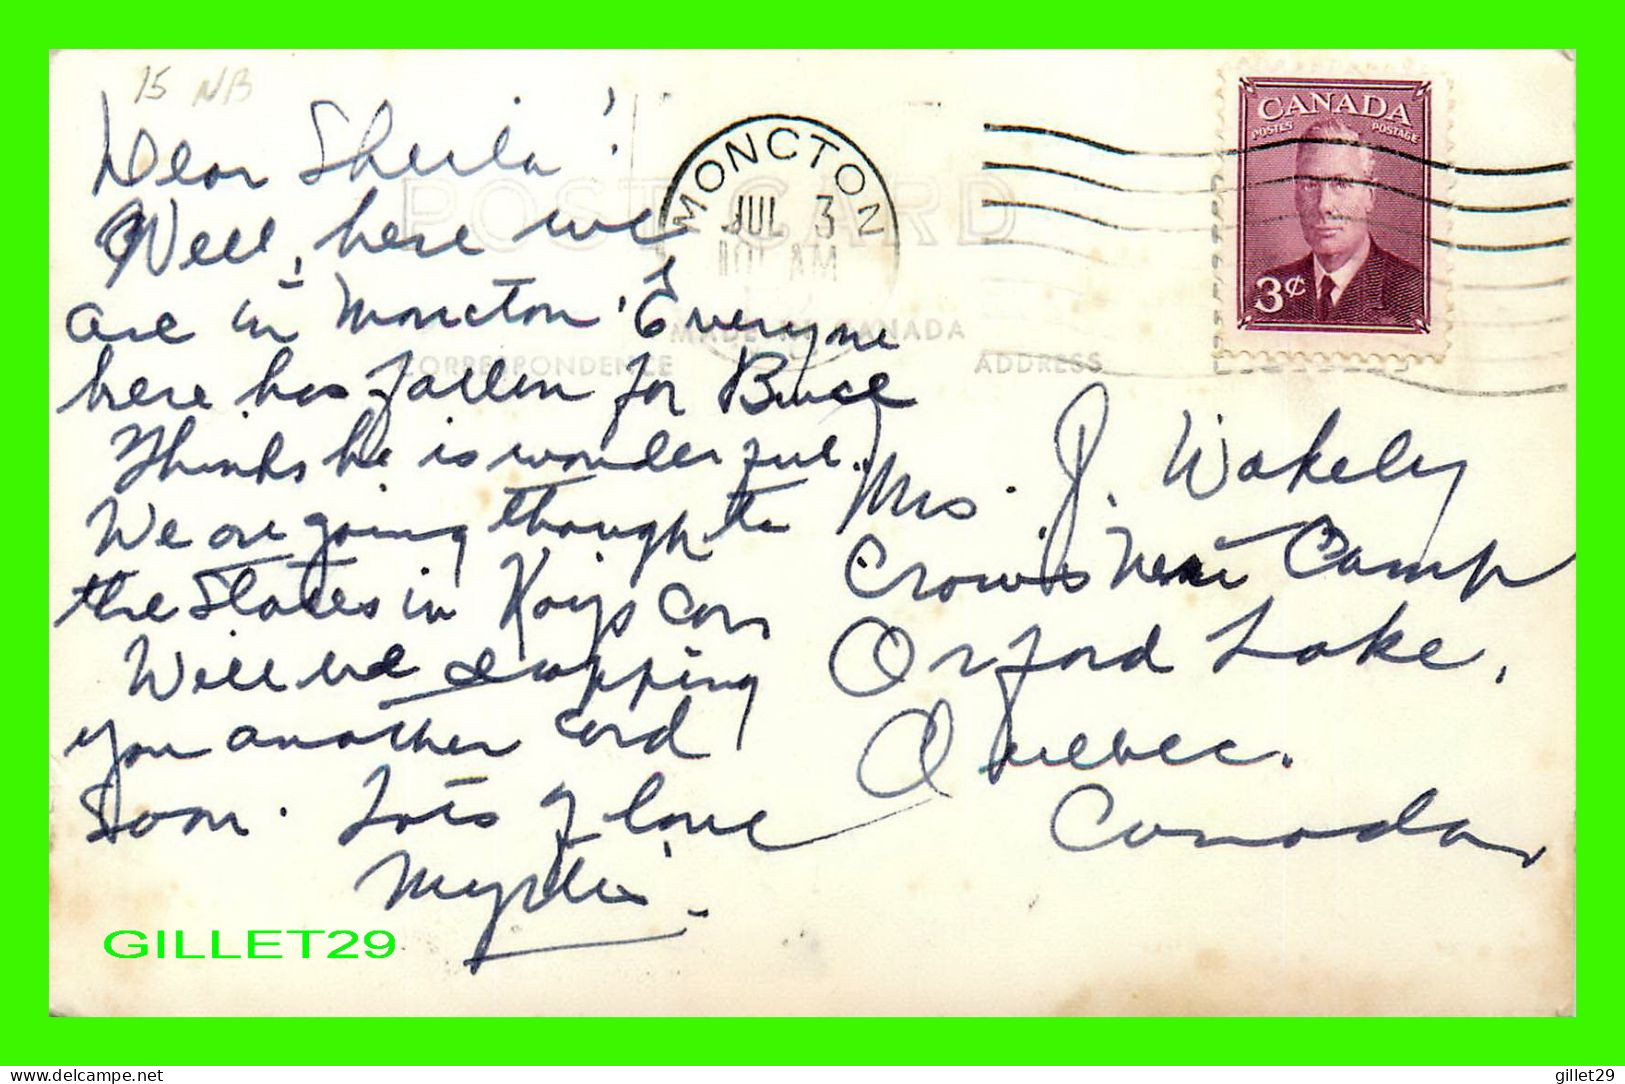 15 NB
Dear Sheila!
Well, here we
are in Moncton. Everyone
here has fallen for Bruce
Thinks he is wonderful.
We are going through to
the States in Kays Car
Will be dropping
you another card
soon. Lots of love
POST CARD
MADE IN CANADA
CORRESPONDENCE
ADDRESS
MONCTON
JUL 3
AM
CANADA
POSTES POSTAGE
3¢
Mrs. J. Wakely
Crow's Nest Camp
Orford Lake,
Quebec.
Canada
GILLET29
delcampe.net
gillet29